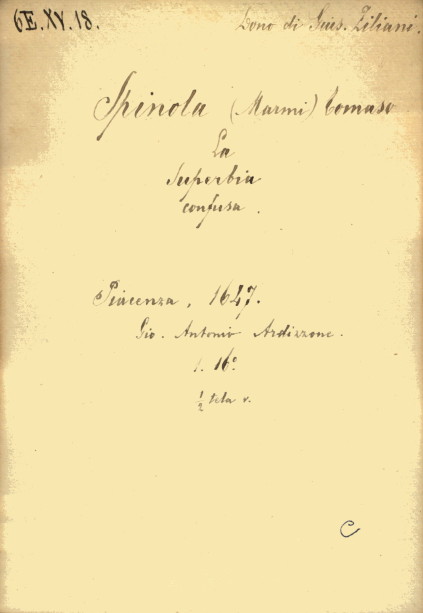 6E.XV.18.
Dono di Gius. Ziliani.
Spinola (Marmi) Tomaso
La
Superbia
confusa.
Piacenza, 1647.
Gio. Antonio Ardizzone.
1. 16°
½ tela v.
C